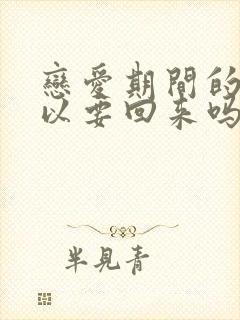 戀愛期間的
以要回来吗
半見青